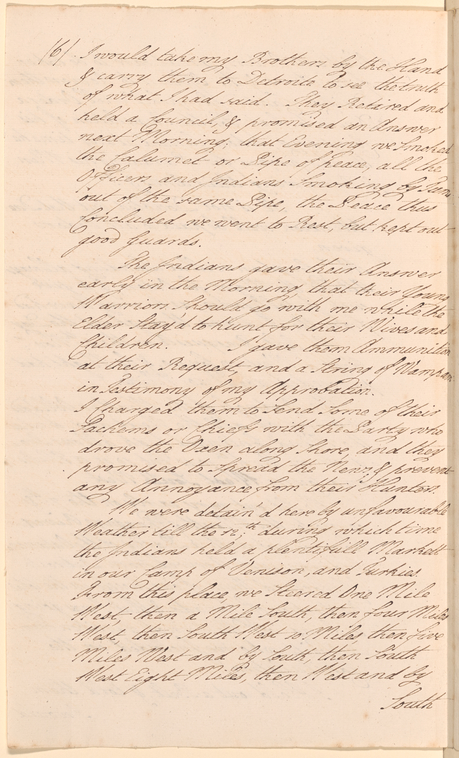 (6) I would take my Brothers by the Hand
& carry them to Detroite to see the truth
of what I had said. They Retired and
held a Council, & promised an Answer
next Morning; that Evening we Smoked
the Calumet or Pipe of peace, all the
Officers and Indians Smoking by Turns
out of the same Pipe, the Peace thus
Concluded we went to Rest, but kept out
good Guards.
The Indians gave their Answer
early in the Morning, that their Young
Warriors Should go with me while the
Elder Stay'd to hunt for their Wives and
Children. I gave them Ammunition
at their Request, and a String of Wampum
in Testimony of my Approbation.
I Charged them to Send Some of their
Sachems or Chiefs with the Party who
drove the Oxen along Shore, and they
promised to Spread the News, & prevent
any Annoyance from their Hunters
We were detain'd here by unfavourable
Weather till the 12.th during which time
the Indians held a plentifull Markett
in our Camp of Venison, and Turkies.
From this place we Steered One Mile
West, then a Mile South, then four Miles
West, then South West 10, Miles, then Five
Miles West and by South, then South
West Eight Miles, then West and by
South